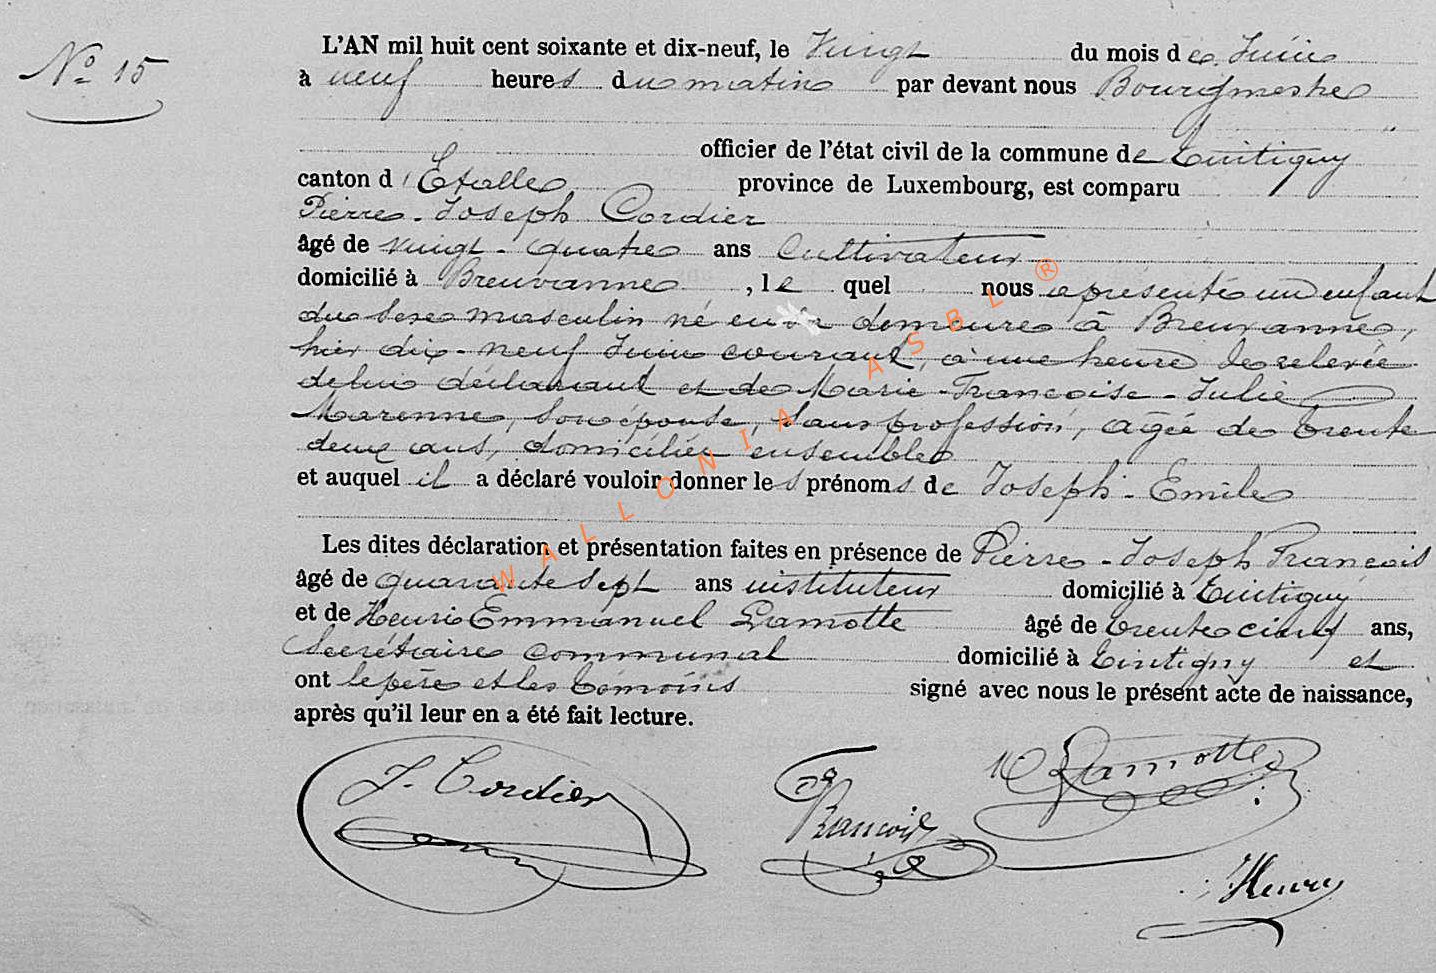 N° 15
L'AN mil huit cent soixante et dix-neuf, le Vingt du mois de Juin
à neuf heures du matin par devant nous Bourgmestre
officier de l'état civil de la commune de Tintigny
canton d'Etalle province de Luxembourg, est comparu
Pierre-Joseph Cordier
âgé de vingt-quatre ans Cultivateur
domicilié à Breuvanne, le quel nous a présenté un enfant
du Sexe masculin né en sa demeure à Breuvanne,
hier dix-neuf Juin courant, à une heure de relevée
de lui déclarant et de Marie-Françoise-Julie
Marenne, Son épouse, Sans profession, âgée de trente
deux ans, domiciliés ensemble
et auquel il a déclaré vouloir donner les prénoms de Joseph-Emile
Les dites déclaration et présentation faites en présence de Pierre-Joseph François
âgé de quarante Sept ans instituteur domicilié à Tintigny
et de Henri Emmanuel Lamotte âgé de trente cinq ans,
Secrétaire communal domicilié à Tintigny et
ont le père et les témoins signé avec nous le présent acte de naissance,
après qu'il leur en a été fait lecture.
J. Cordier
François
Lamotte
Henry
WALLONIA ASBL ®